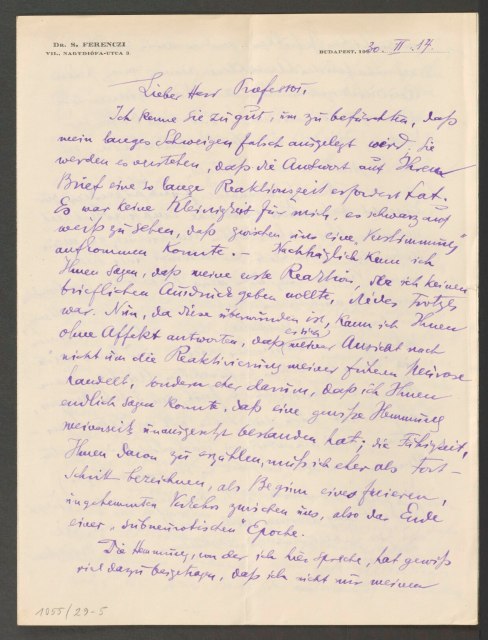 Dr. S. FERENCZI
VII., NAGYDIÓFA-UTCA 3.
BUDAPEST, 19
Lieber Herr Professor,
Ich kenne Sie zu gut, um zu befürchten, daß
mein langes Schweigen falsch ausgelegt wird; Sie
werden es verstehen, daß die Antwort auf Ihren
Brief eine so lange Reaktionszeit erfordert hat.
Es war keine Kleinigkeit für mich, es schwarz auf
weiß zu sehen, daß zwischen uns eine „Verstimmung"
aufkommen konnte. – Nachträglich kann ich
Ihnen sagen, daß meine erste Reaktion, der ich keinen
brieflichen Ausdruck geben wollte, die des Trotzes
war. Nun, da diese überwunden ist, kann ich Ihnen
ohne Affekt antworten, daß es sich meiner Ansicht nach
nicht um die Reaktivierung meiner früheren Neurose
handelt, sondern eher darum, daß ich Ihnen
endlich sagen konnte, daß eine gewisse Hemmung
meinerseits unausgesetzt bestanden hat; die Fähigkeit,
Ihnen davon zu erzählen, muß ich eher als Fort-
schritt bezeichnen, als Beginn eines freieren,
ungehemmten Verkehrs zwischen uns, also das Ende
einer „subneurotischen" Epoche.
Die Hemmung, von der ich hier spreche, hat gewiß
viel dazu beigetragen, daß ich nicht nur meinen
1055/29-5